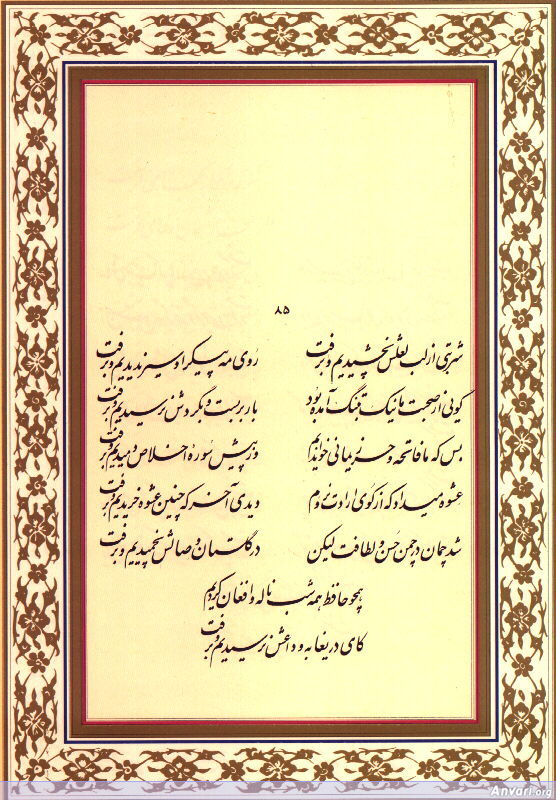 ۸۵
شربتی از لب لعلش نچشیدیم و برفت روی مه پیکر او سیر ندیدیم و برفت
گوئی از صحبت ما نیک بتنگ آمده بود بار بربست و بگردش نرسیدیم و برفت
بس که ما فاتحه و حرز یمانی خواندیم وز پیش سوره اخلاص دمیدیم و برفت
عشوه میداد که از کوی ارادت نروم دیدی آخر که چنین عشوه خریدیم و برفت
شد چمان در چمن حسن و لطافت لیکن در گلستان وصالش نچمیدیم و برفت
همچو حافظ همه شب ناله و افغان کردیم
کای دریغا به وداعش نرسیدیم و برفت
Anvari.org